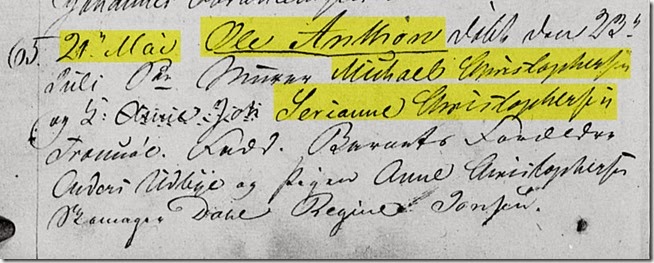 65. 21n Mai Ole Anthon døbt den 23n
Juli Murer Michael Christophersen
og Serianne Christophersen
Tromsøe. Fadd. Barnets Forældre
Anders Udbye og Pigen Anne Christophersen
Skomager Dahl Regine Jonsen.